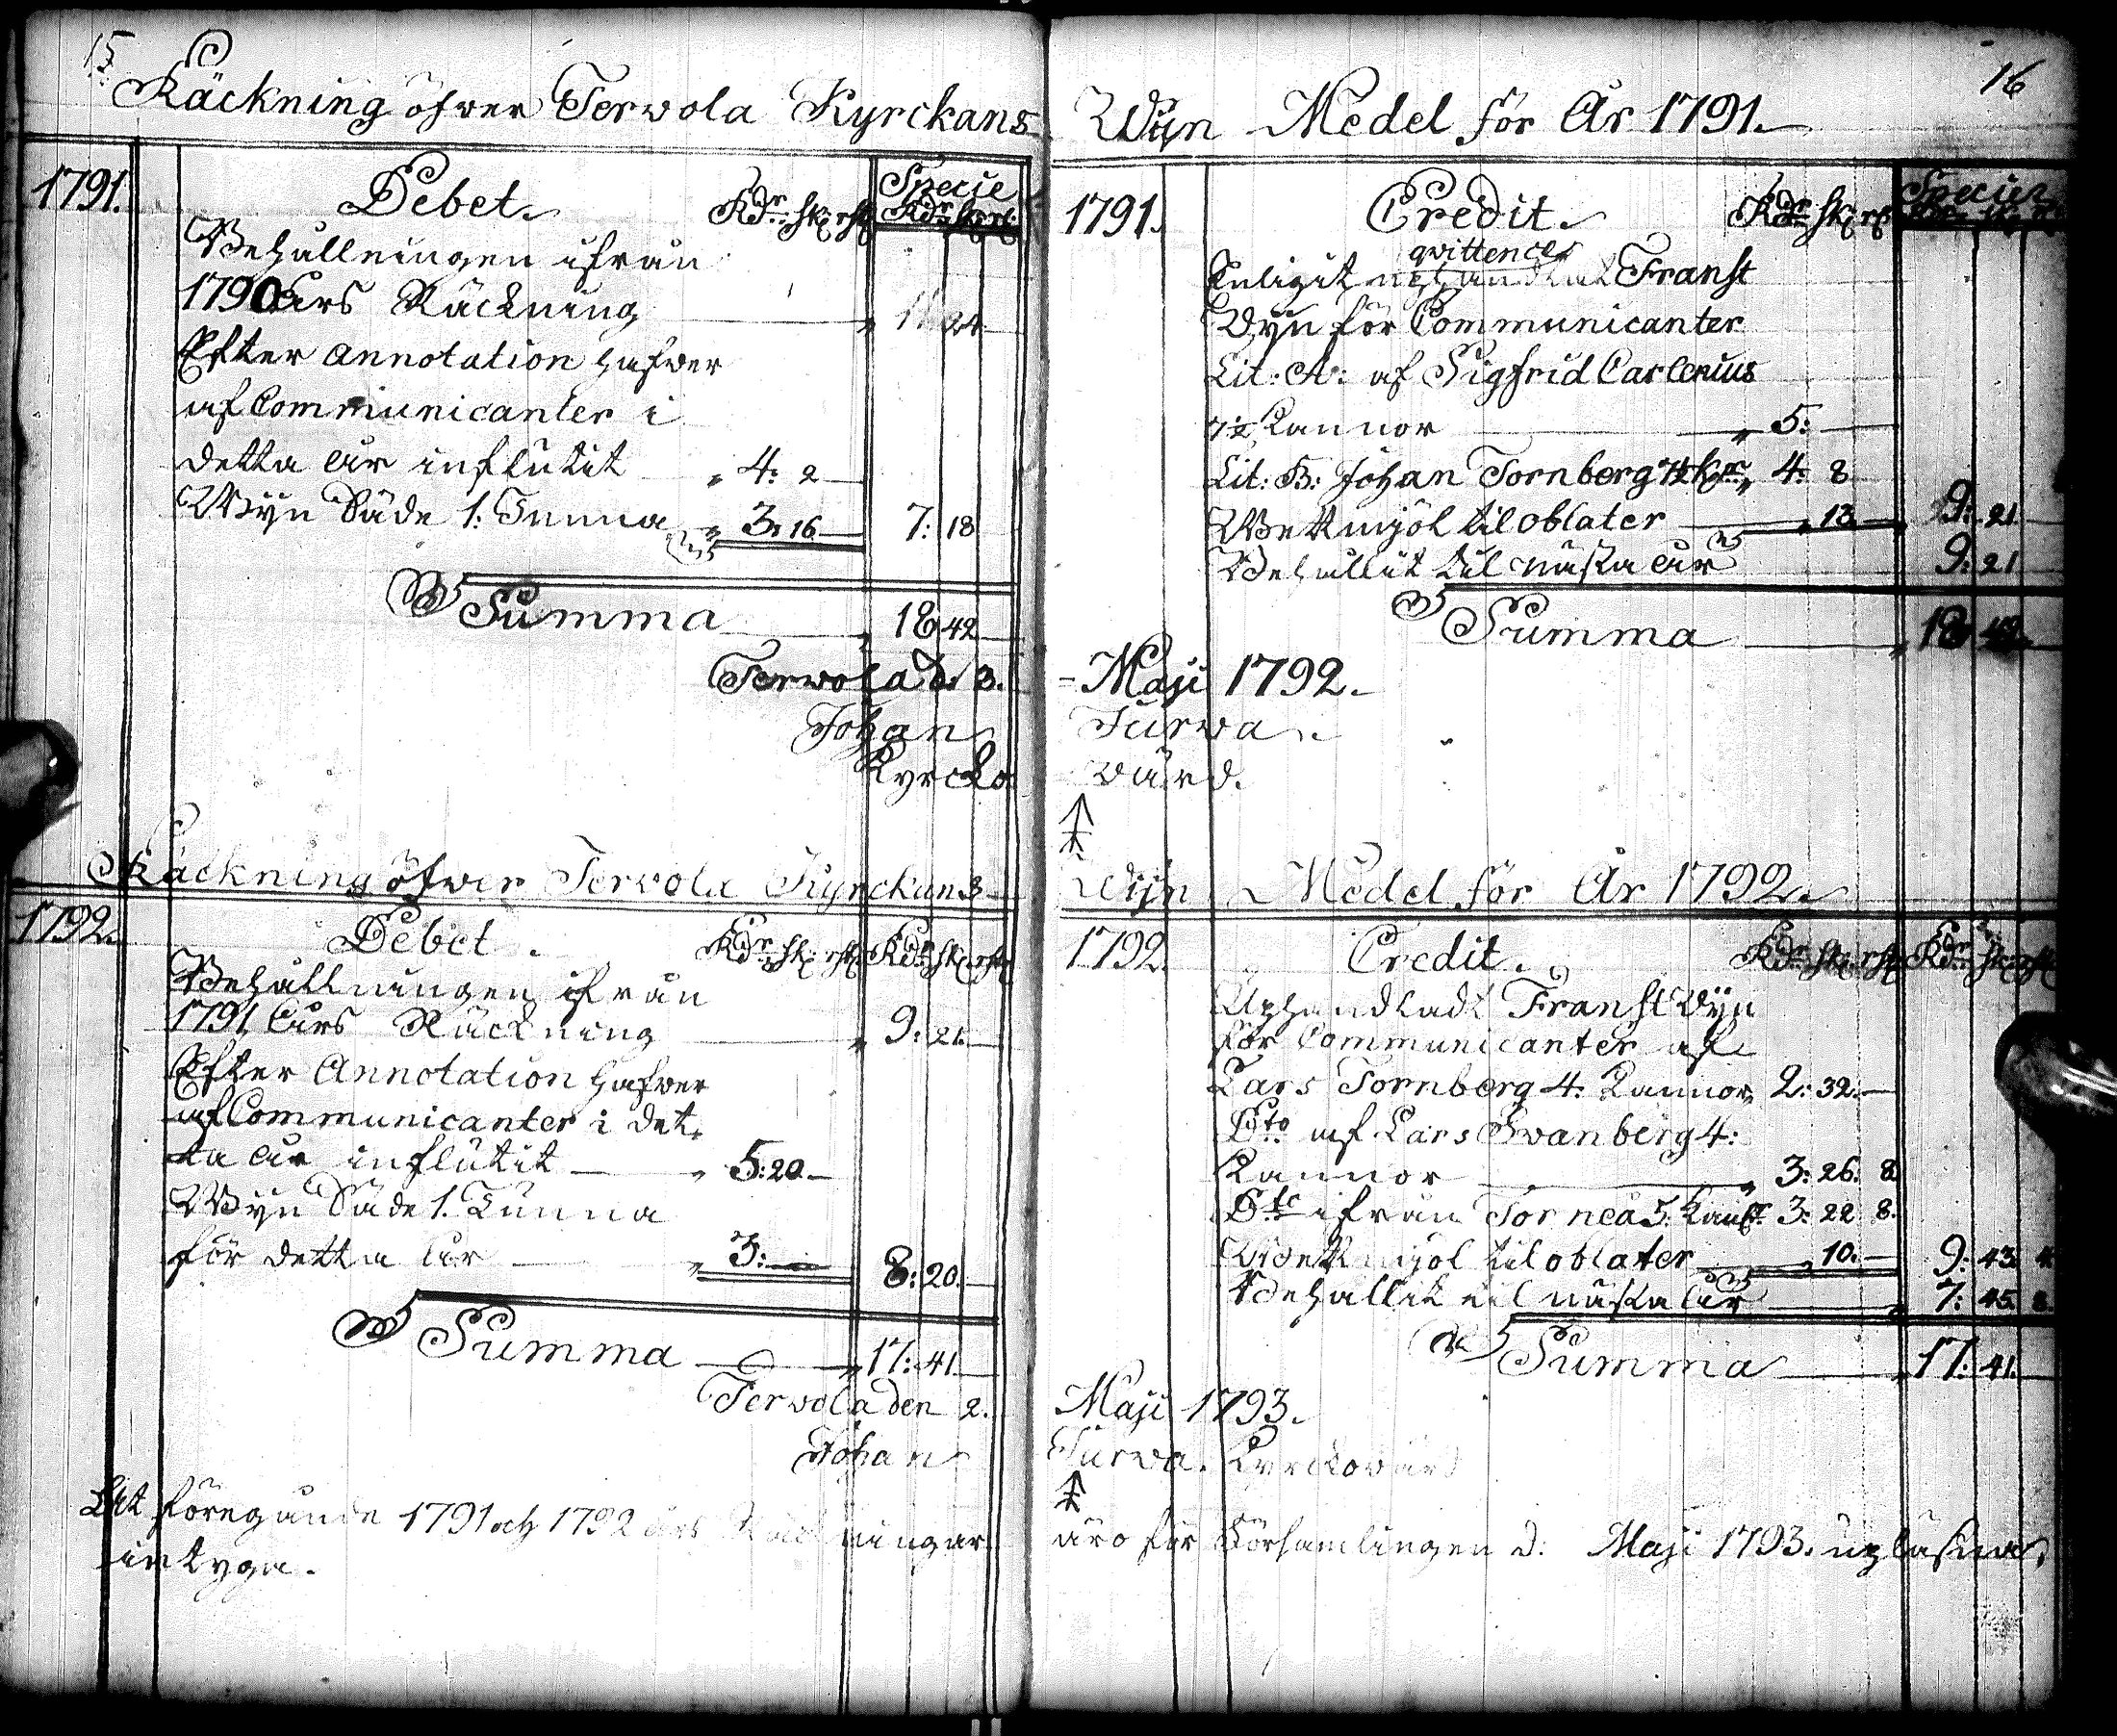 15
Räckning öfwer Terwola Kyrckans
1791.
Debet.
Rdr sk: rst.
Specie
Rdr sk: rst.
Behållningen ifrån
1790 Års Räckning 11 24
Efter Annotation hafwer
af Communicanter i
detta år influtit 4: 2
Wijn Säde 1: Tunna 3: 16. 7: 18
Summa 18 42
Terwola d. 3.
Johan
Kyrcko
Räckning öfwer Terwola Kyrckans
1792.
Debet.
Rdr sk: rst. Rdr sk: rst.
Behållningen ifrån
1791 Års Räckning 9: 21.
Efter Annotation hafwer
af Communicanter i det-
ta år influtit 5: 20.
Wijn Säde 1. Tunna
för detta år 3: 8: 20.
Summa 17: 41.
Terwola den 2.
Johan
At föregående 1791 och 1792 års Räckningar
intyga.
16
Wijn Medel för År 1791.
1791.
Credit.
Rdr sk: rst.
Specie
qvittencer
Enligit uphandlat Franst
Wijn för Communicanter
Lit: A: af Sigfrid Carlenius
7½ Kannor 5:
Lit: B: Johan Tornberg 7½ Knr 4: 8
Wetmjöl til oblater 13. 9: 21
Behållit til nästa år 9: 21
Summa 18 42
Maji 1792.
Turwa.
wärd.
Wijn Medel för År 1792.
1792.
Credit.
Rdr sk: rst. Rdr sk: rst.
Uphandladt Franst Wijn
för Communicanter af
Lars Tornberg 4: Kannor 2: 32.
Dto af Lars Swanberg 4:
Kannor 3: 26: 8
Dto ifrån Torneå 5: Kanr 3: 22 8.
Wetmjöl til oblater 10. 9: 43 4
Behållit til nästa år 7: 45 8.
Summa 17: 41.
Maji 1793.
Turwa. Kyrckowärd
äro för Församlingen d: Maji 1793. upläsne,